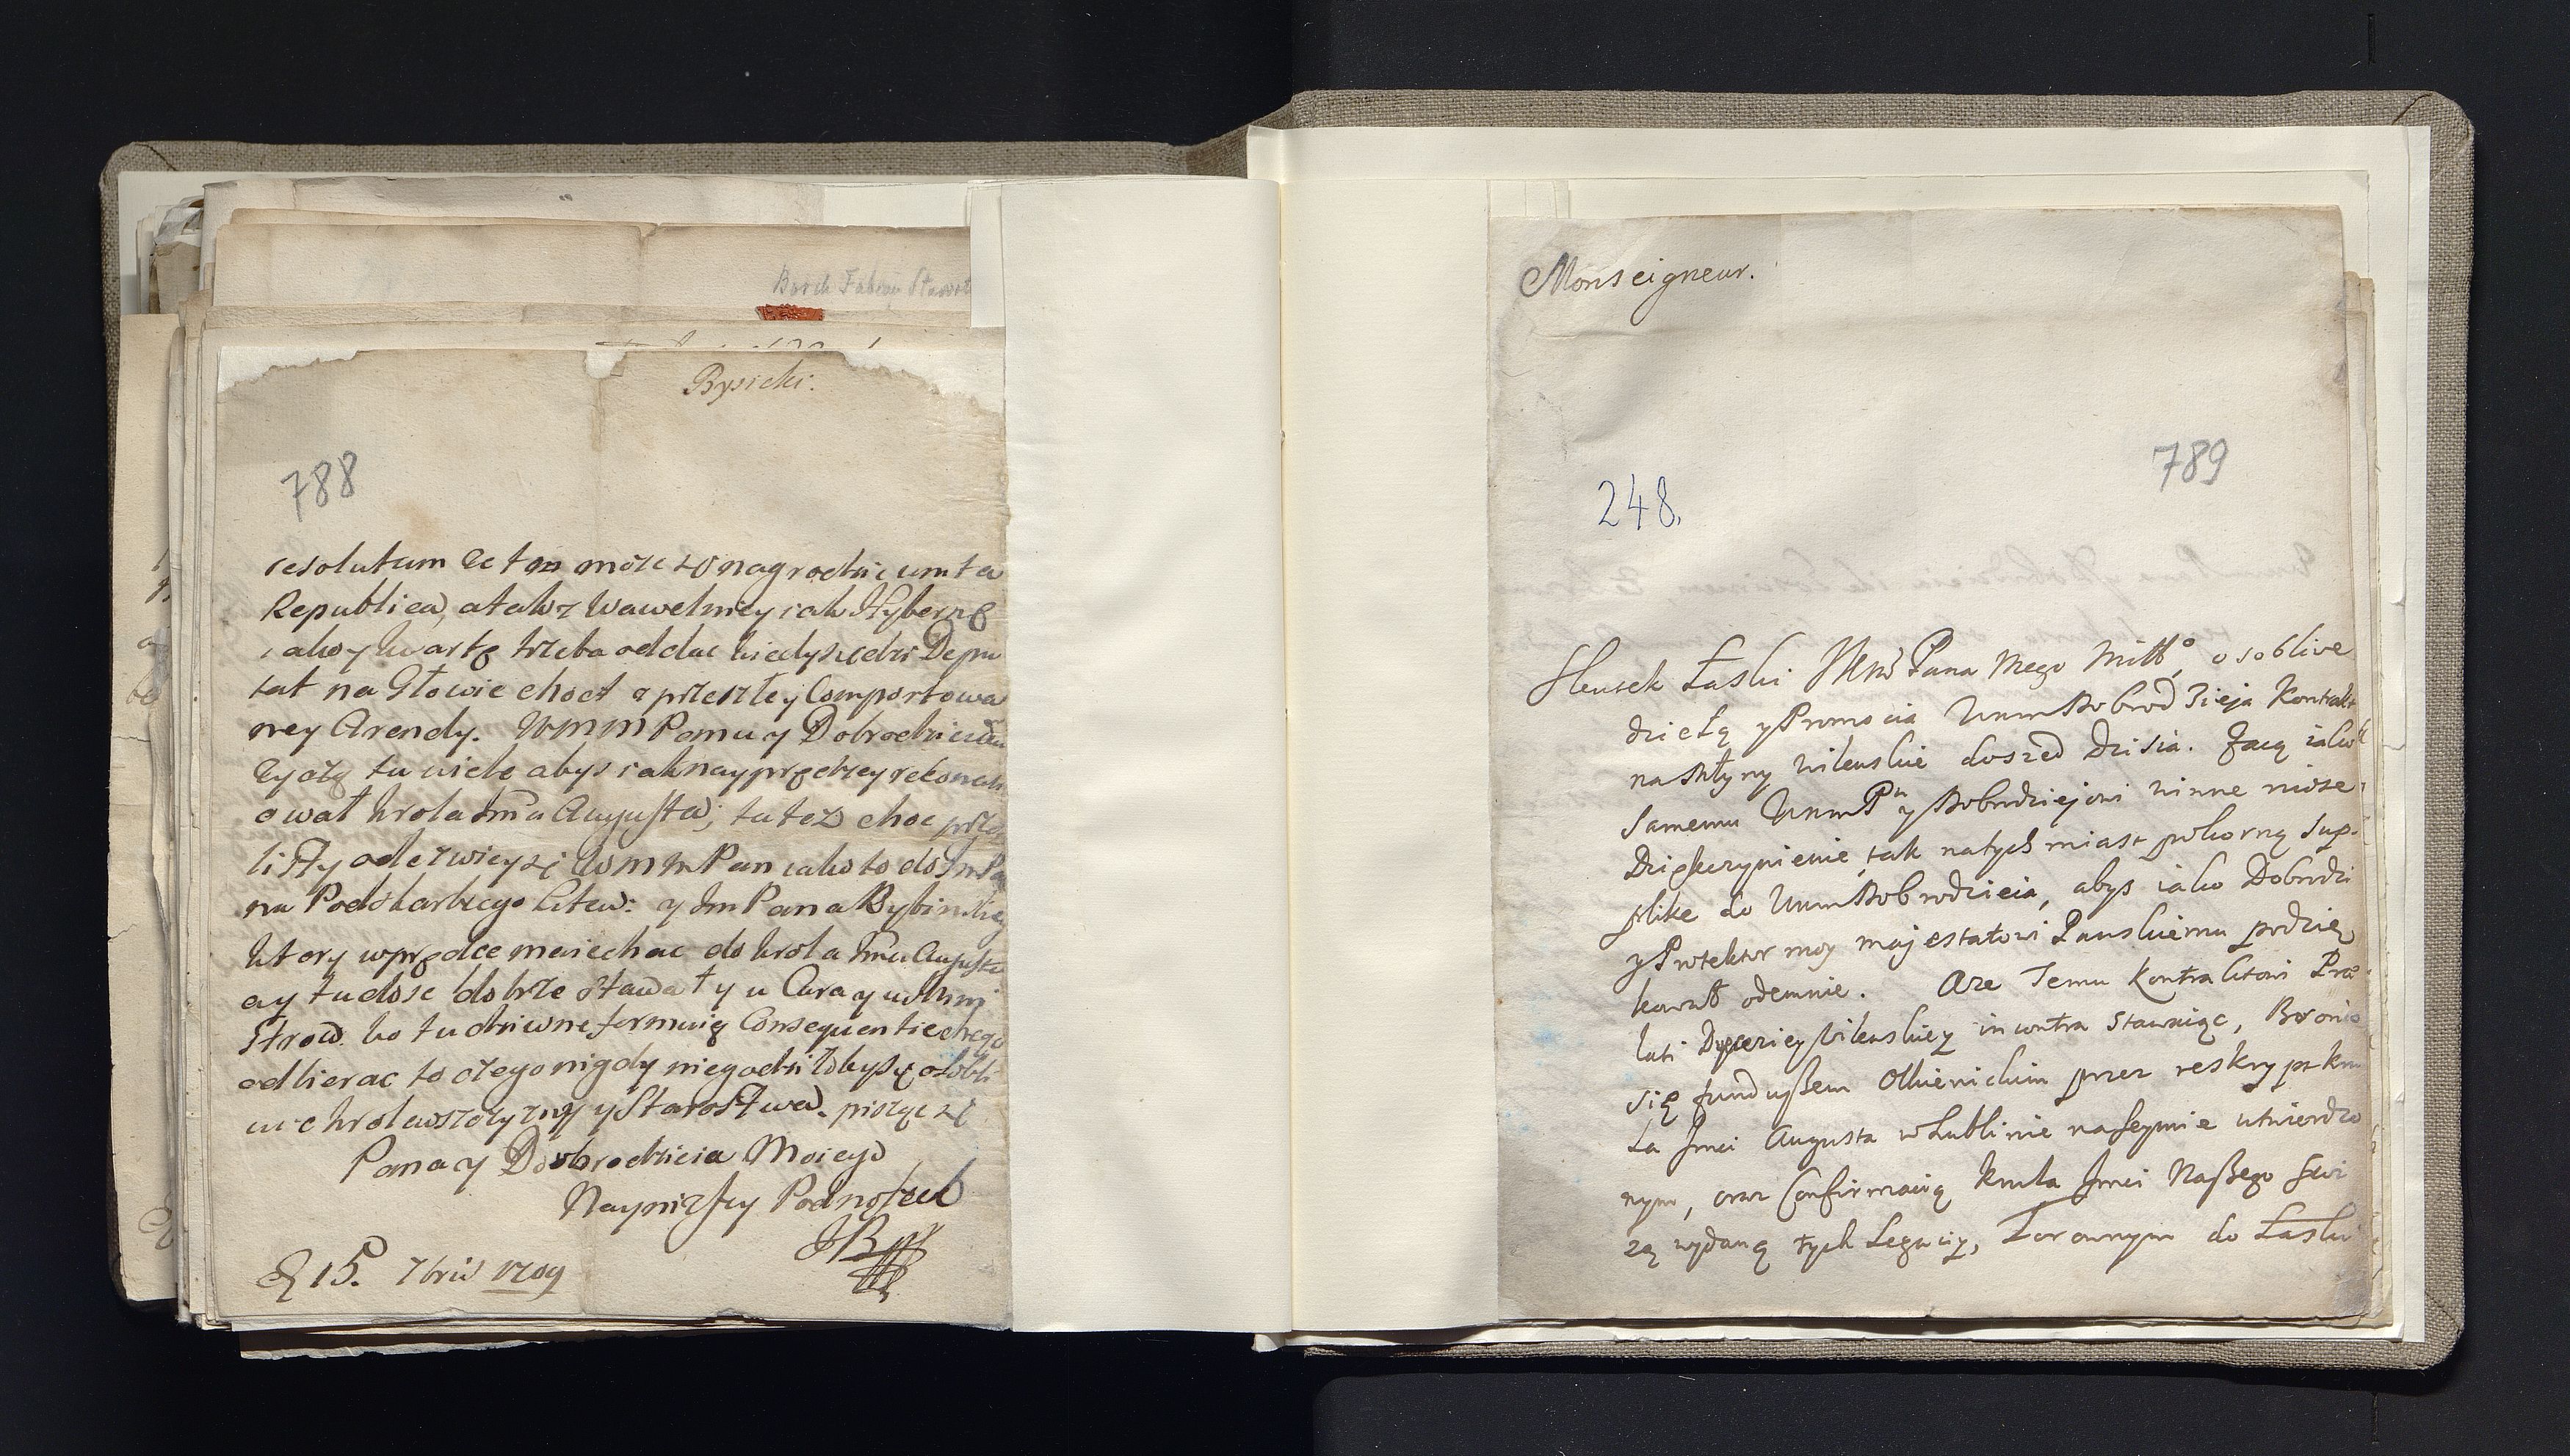 Borch Fabian Starost
Bysicki.
788
resolutum Ze to może zo nagrodzic um ta
Republica, a tak z Wawelniey iak Hybernę
iako y kwartę trzeba oddac kiedy siedzi Depu
tat na Głowie choct z przeszłey Comportowa
ney Arendy. WMM Panu y Dobrodzieiowi
Zyczę tu wiele abys iak nayprędzey rekoncili
owal krola Jmci Augusta; tu tez choc przez
listy odezwiey się WmmPan iako to do Jm Pa
na Podskarbiego Litew: y Jm Pana Bybinskiey
ktory wprędce ma iechac do krola Jmci Augusta
ay tu dosc dobrze stawał y u Cara y u Mini
strow. bo tu dziwne formuią Consequentie chcąc
odbierac to czego nigdy niegodziłoby się osobli
wie krolewszczyzny y Starostwa. piszę się
Pana y Dobrodzieia Moiego
Nayniższy Podnożek
JB
15. 7bris 1709
Monseigneur.
789
248.
Skutek Łaski Pana Mego Miłł°, osobliwe
dzieło y Promocia WmmDobrodzieja Kontrakt
na Młyny Wilenskie doszed dzisia. Za co iako
samemu WmmP y Dobrodziejowi winne niose
Dziękczynienie, tak natychmiast pokorną sup-
plike do WmmDobrodzieia, abys iako Dobrodzi
y Protektor moy majestatowi Panskiemu podzię
kował odemnie. Aze Temu Kontraktowi Prae
laci Dyeceziey Wilenskiey in contra stawaiąc, Bronio
się fundußem Olkienickim przez reskrypt kro
la Jmci Augusta w Lublinie na seymie utwierdzo
nym, oraz Confirmacią krola Jmci Naßego świ
zą wydaną tych Legacij, do Łaski